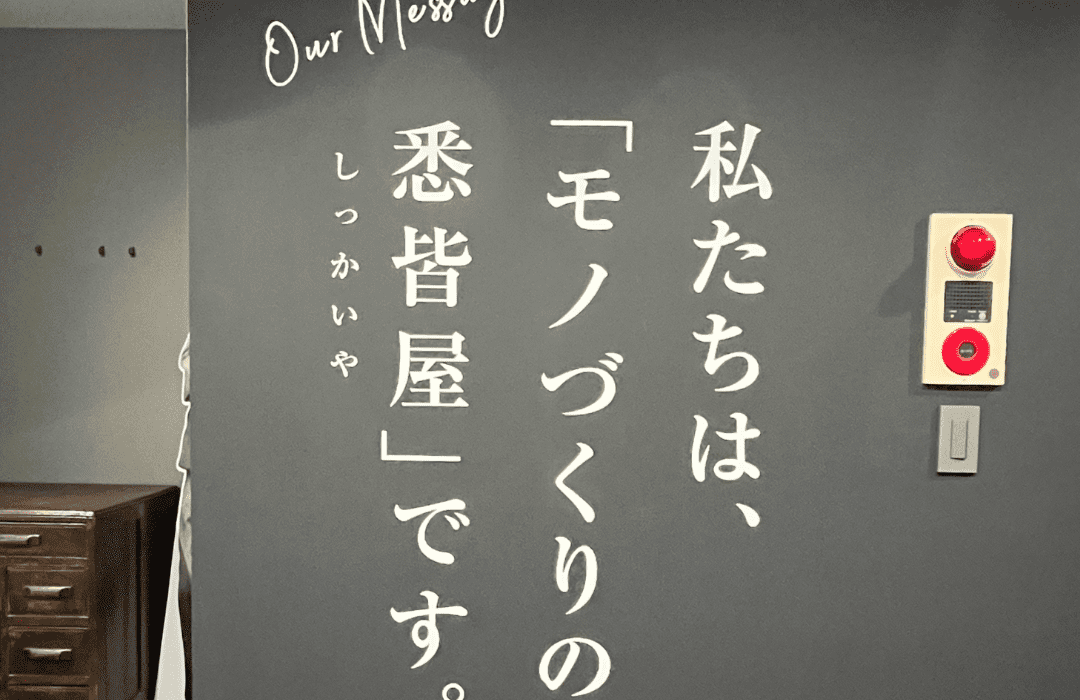 Our Messag
私たちは、
「モノづくりの
悉皆屋」です。
しっかいや